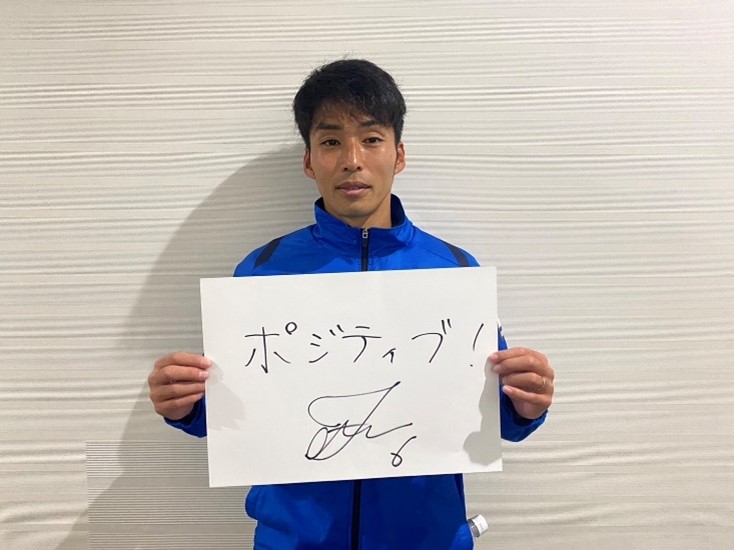 ポジティブ!
6